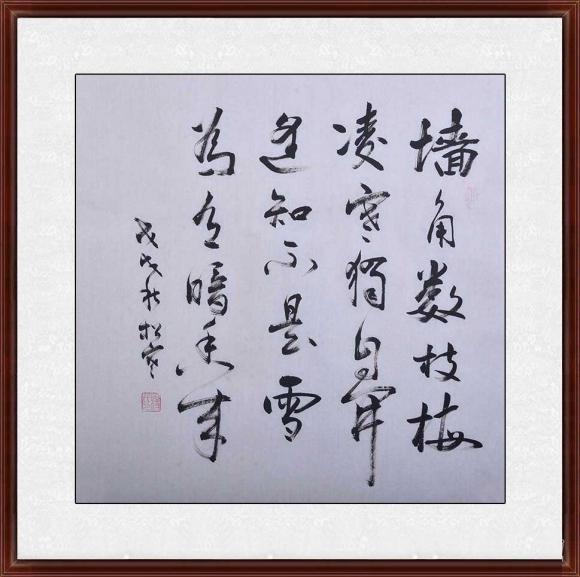 墙角數枝梅
凌寒獨自開
遥知不是雪
為有暗香来
戊戌秋松寒